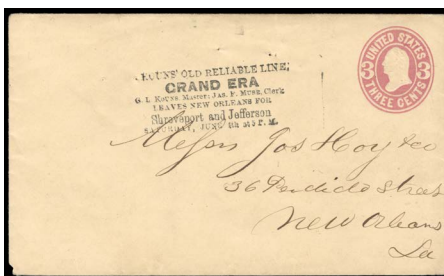 KOUNS' OLD RELIABLE LINE;
GRAND ERA
G. L. KOUNS Master; JAS. F. MUSE, Clerk
LEAVES NEW ORLEANS FOR
Shreveport and Jefferson
SATURDAY, JUNE 4th at 5 P. M.
UNITED STATES
3 3
THREE CENTS
Messrs Jos Hoy & co
36 Perdido Street
New Orleans
La